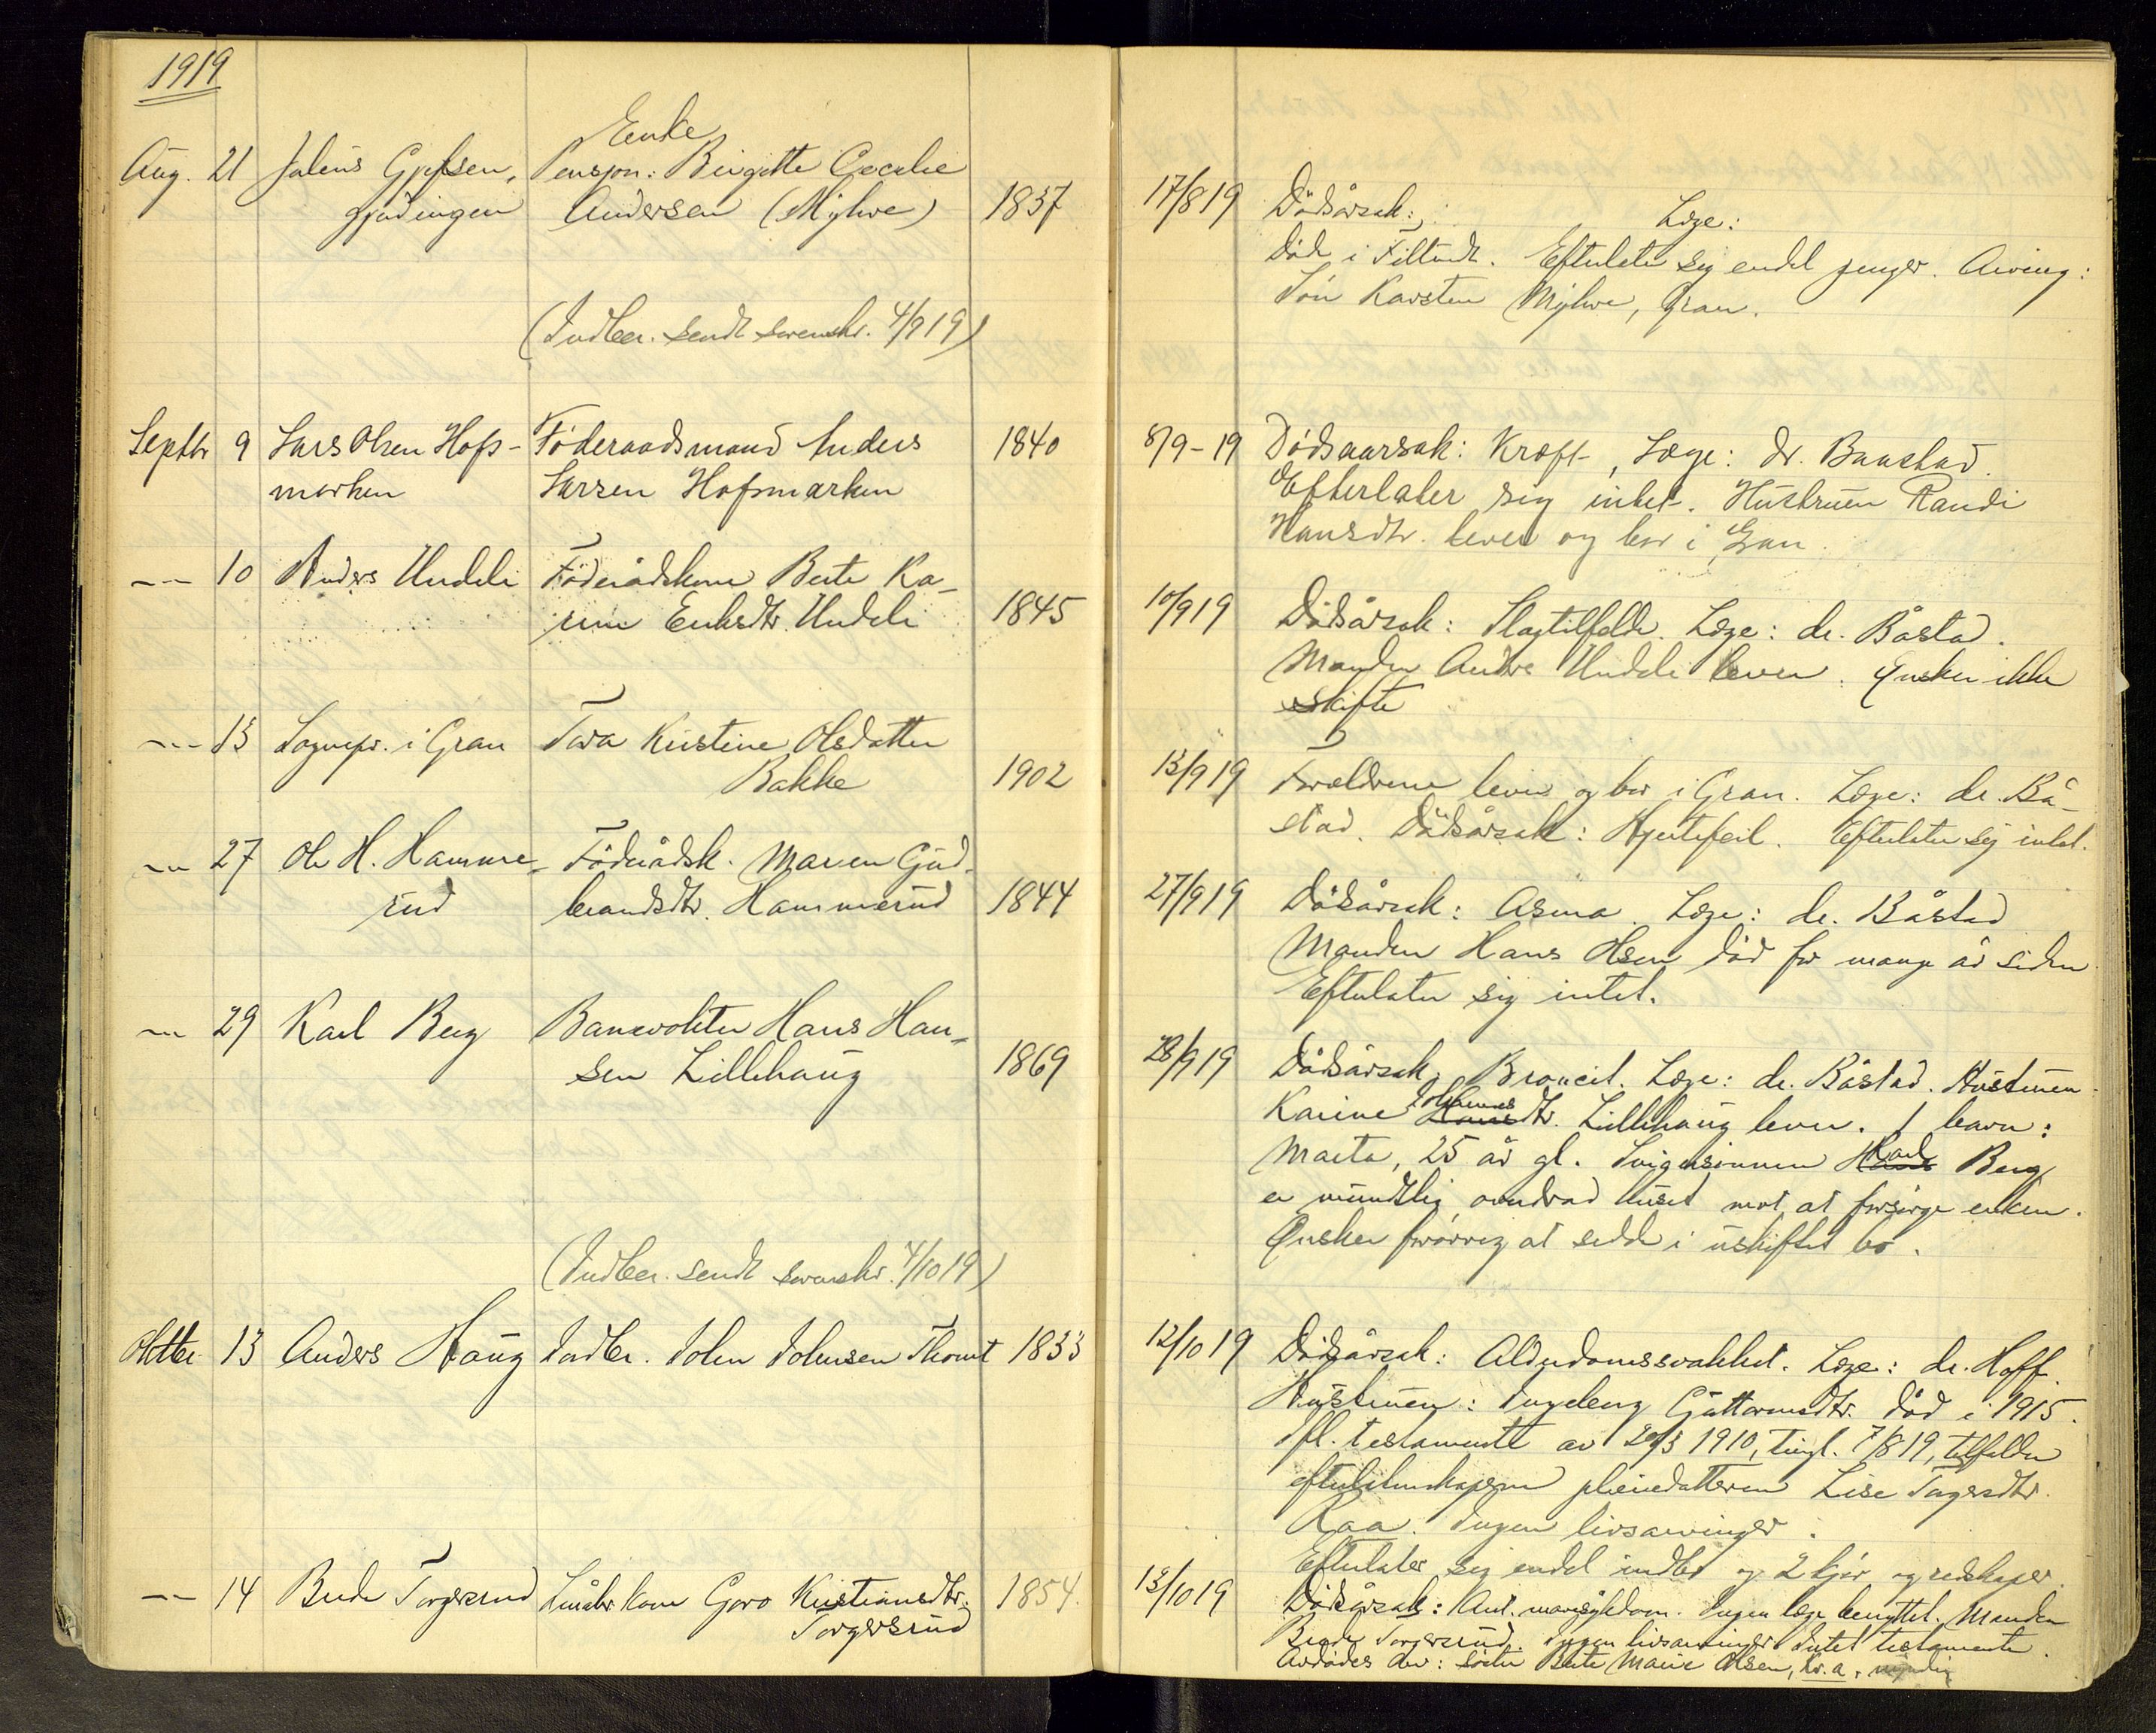 1919
Enke
Aug. 21 Julius Gjefsen, Pensjon: Birgitte Cecelie
Gjødingen Andersen (Myhre) 1837
(Indber. sendt sorenskr. 4/9 19)
Septbr 9 Lars Olsen Hofs- Føderaadsmand Anders 1840
marken Larsen Hofsmarken
-"- 10 Anders Undeli Føderådskone Berte Ka-
rine Eriksdtr. Undeli 1845
-"- 13 Sognepr. i Gran Tora Kristine Olsdatter
Bakke 1902
-"- 27 Ole H. Hamme- Føderådsk. Maren Gud-
rud brandsdtr. Hammerud 1844
-"- 29 Karl Berg Banevokter Hans Han-
sen Lillehaug 1869
(Indber. sendt sorenskr. 4/10 19)
Oktbr. 13 Anders Haug Inder. John Johnsen 1833
-"- 14 Brede Torgersrud kone Goro Kristiansdtr. 1854.
Torgersrud
17/8 19 Dødsårsak: Læge:
Død i Efterlater sig endel penger. Arving:
Søn Karsten Myhre, Gran.
8/9-19 Dødsaarsak: Kræft, Læge: Dr. Baastad.
Efterlater sig intet. Hustruen Randi
Hansdtr. lever og bor i Gran
10/9 19 Dødsårsak: Slagtilfelde. Læge: dr. Båstad.
Manden Anders Undeli lever. Ønsker ikke
skifte
13/9 19 Forældrene lever og bor i Gran. Læge: dr. Bå-
stad. Dødsårsak: Hjertefeil. Efterlater sig intet.
27/9 19 Dødsårsak: Asma. Læge: dr. Båstad
Manden Hans Olsen død for mange år siden
Efterlater sig intet.
28/9 19 Dødsårsak: Broncit. Læge: dr. Båstad. Hustruen
Karine Johannesdtr. Lillehaug lever. 1 barn:
Marta, 25 år gl. Svigersønnen Karl Berg
er mundtlig overdrad huset mot at forsørge enken.
Ønsker forøvrig at sidde i uskiftet bo.
12/10 19 Dødsårsak: Alderdomssvakhet. Læge: dr. Hoff.
Hustruen: Ingeborg Guttormsdtr. død i 1915.
Ifl. testamente av 20/3 1910, tingl. 7/8 19, tilfalder
efterlatenskapene pleiedatteren Lise Torgersdtr.
Raa. Ingen livsarvinger.
Efterlater sig endel indbo og 2 kjør og redskaper.
13/10 19 Dødsårsak: Ant. mavesykdom. Ingen læge benyttet. Manden
Brede Torgersrud. Ingen livsarvinger. Intet testamente.
Avdødes arv: søster Berte Marie Olsen, myndig